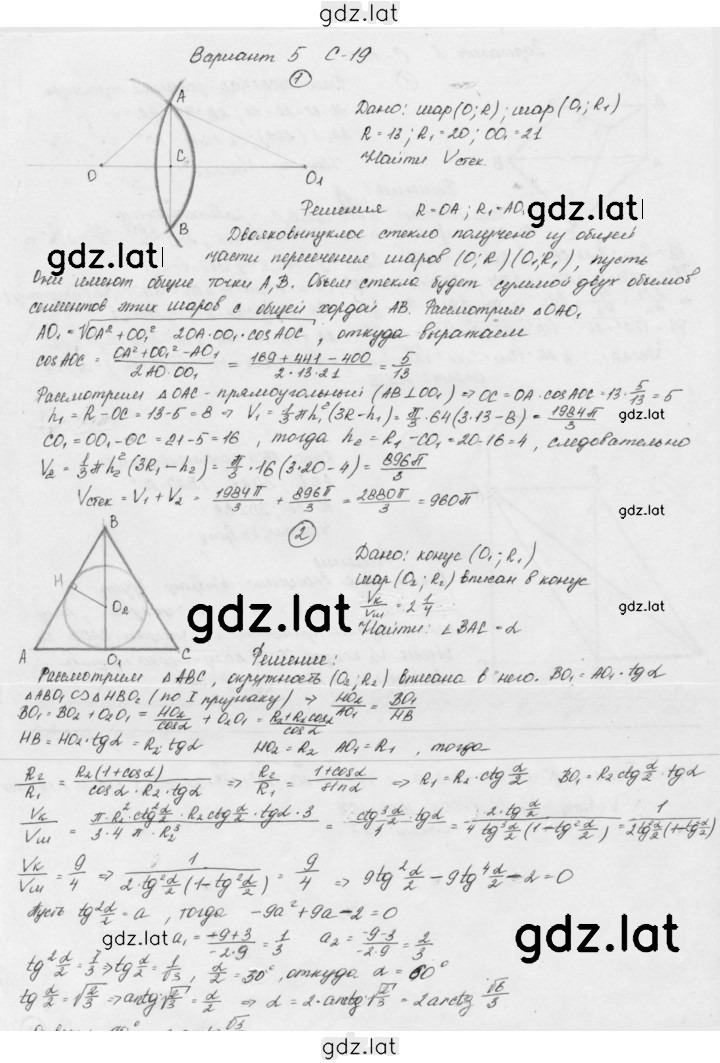 gdz.lat
Вариант 5 С-19
1
A
C
O
O1
B
Дано: шар (O; R); шар (O₁; R₁)
R = 13; R₁ = 20; OO₁ = 21
Найти Vстек.
Решения R = OA; R₁ = AO₁
gdz.lat
gdz.lat
Двояковыпуклое стекло получено из общей
части пересечения шаров (O; R) (O₁; R₁), пусть
Они имеют общие точки A, B. Объем стекла будет суммой двух объемов
сегментов этих шаров с общей хордой AB. Рассмотрим △OAO₁
AO₁ = √OA² + OO₁² · 2OA·OO₁·cosAOC, откуда выражаем
cosAOC = OA² + OO₁² - AO₁ / 2AO·OO₁ = 169 + 441 - 400 / 2·13·21 = 5/13
Рассмотрим △OAC - прямоугольный (AB⊥OO₁) ⇒ OC = OA·cosAOC = 13·5/13 = 5
h₁ = R - OC = 13-5 = 8 ⇒ V₁ = 1/3πh₁²(3R-h₁) = π/3·64(3·13-8) = 1984π/3
gdz.lat
CO₁ = OO₁ - OC = 21-5 = 16, тогда h₂ = R₁ - CO₁ = 20-16 = 4, следовательно
V₂ = 1/3πh₂²(3R₁-h₂) = π/3·16(3·20-4) = 896π/3
Vстек = V₁ + V₂ = 1984π/3 + 896π/3 = 2880π/3 = 960π
gdz.lat
2
B
H
O₂
A
O₁
C
Дано: конус (O₁; R₁)
шар (O₂; R₂) вписан в конус
Vк/Vш = 2 1/4
Найти: ∠BAC = α
gdz.lat
gdz.lat
Решение:
Рассмотрим △ABC, окружность (O₂; R₂) вписана в него. BO₁ = AO₁·tgα
△ABO₁ ∽ △HBO₂ (по I признаку) ⇒ HO₂/AO₁ = BO₁/HB
BO₁ = BO₂ + O₂O₁ = HO₂/cosα + O₂O₁ = R₂+R₂cosα/cosα
HB = HO₂·tgα = R₂·tgα HO₂ = R₂ AO₁ = R₁, тогда
R₂/R₁ = R₂(1+cosα)/cosα·R₂·tgα ⇒ R₂/R₁ = 1+cosα/sinα ⇒ R₁ = R₂·ctgα/2 BO₁ = R₂ctgα/2·tgα
Vк/Vш = π·R₂²ctg²α/2·R₂ctgα/2·tgα·3/3·4π·R₂³ = ctg³α/2·tgα = 2·tgα/2/4tg³α/2(1-tg²α/2) = 1/2tg²α/2(1-tg²α/2)
Vк/Vш = 9/4 ⇒ 1/2·tg²α/2(1-tg²α/2) = 9/4 ⇒ 9tg²α/2 - 9tg⁴α/2 - 2 = 0
Пусть tg²α/2 = a, тогда -9a² + 9a - 2 = 0
gdz.lat
a₁ = -9+3/-2·9 = 1/3 a₂ = -9-3/-2·9 = 2/3
gdz.lat
tg²α/2 = 1/3 ⇒ tgα/2 = 1/√3, α/2 = 30°, откуда α = 60°
tgα/2 = √2/3 ⇒ arctg√2/3 = α/2 ⇒ α = 2·arctg√2/3 = 2arctg √6/3
gdz.lat
gdz.lat